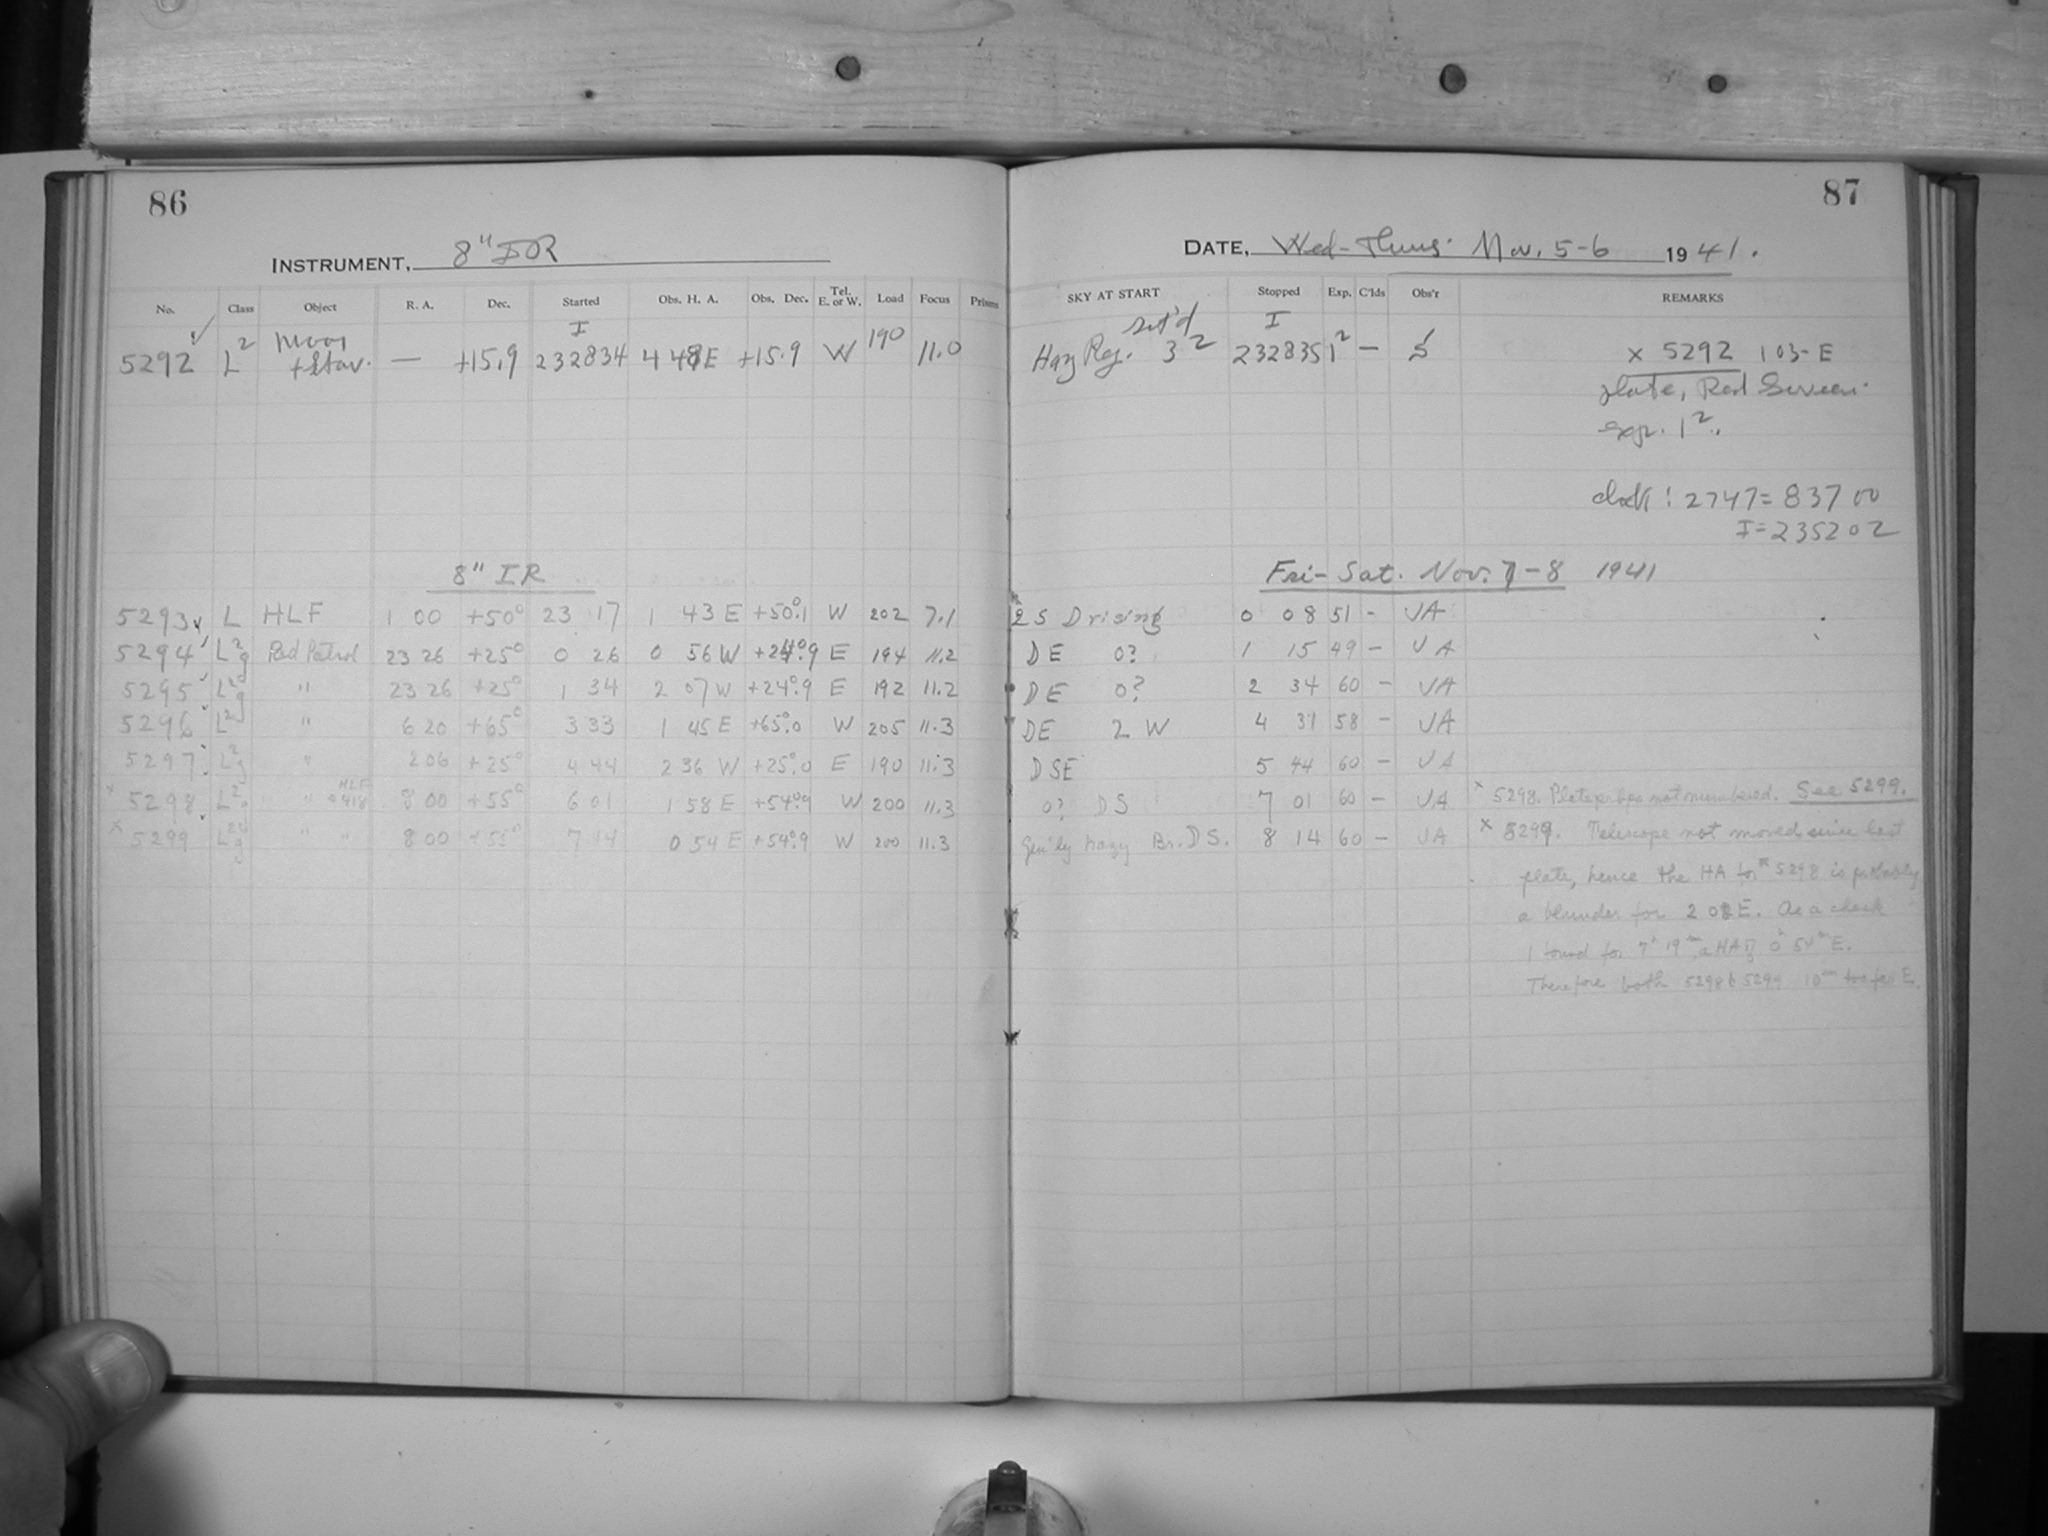 86
INSTRUMENT, 8" IR
No. Class Object R. A. Dec. Started Obs. H. A. Obs. Dec. Tel. E. or W. Load Focus Prisms
5292 L² Moon — +15.9 I 232834 4 48 E +15.9 W 190 11.0
8" IR
5293 L HLF 1 00 +50° 23 17 1 43 E +50°.1 W 202 7.1
5294 L²g Red Patrol 23 26 +25° 0 26 0 56 W +24°.9 E 194 11.2
5295 L²g " 23 26 +25° 1 34 2 07 W +24°.9 E 192 11.2
5296 L²g " 6 20 +65° 3 33 1 45 E +65°.0 W 205 11.3
5297 L²g " 2 06 +25° 4 44 2 36 W +25°.0 E 190 11.3
x 5298 L²g " HLF 418 8 00 +55° 6 01 1 58 E +54°.9 W 200 11.3
x 5299 " " 8 00 +55° 7 14 0 54 E +54°.9 W 200 11.3
87
DATE, Wed-Thurs. Nov. 5-6 1941.
SKY AT START Stopped Exp. C'lds Obs'r REMARKS
Hazy I 232835 1² — x 5292 103-E
plate, Red Screen.
exp. 1².
clock: 2747 = 837 00
I = 235202
Fri-Sat. Nov. 7-8 1941
DS Drising 0 08 51 - VA
DE 0? 1 15 49 - VA
DE 0? 2 34 60 - VA
DE 2 W 4 31 58 - VA
DSE 5 44 60 - VA
0? DS 7 01 60 - VA x 5298. Plate not numbered. See 5299.
Gen'ly hazy Br. DS. 8 14 60 - VA x 5299. Telescope not moved since last
plate, hence the HA for 5298 is probably
a blunder for 2 08 E. As a check
I found for 7ʰ 19ᵐ a HA of 0ʰ 54ᵐ E.
Therefore both 5298 & 5299 10ᵐ too far E.